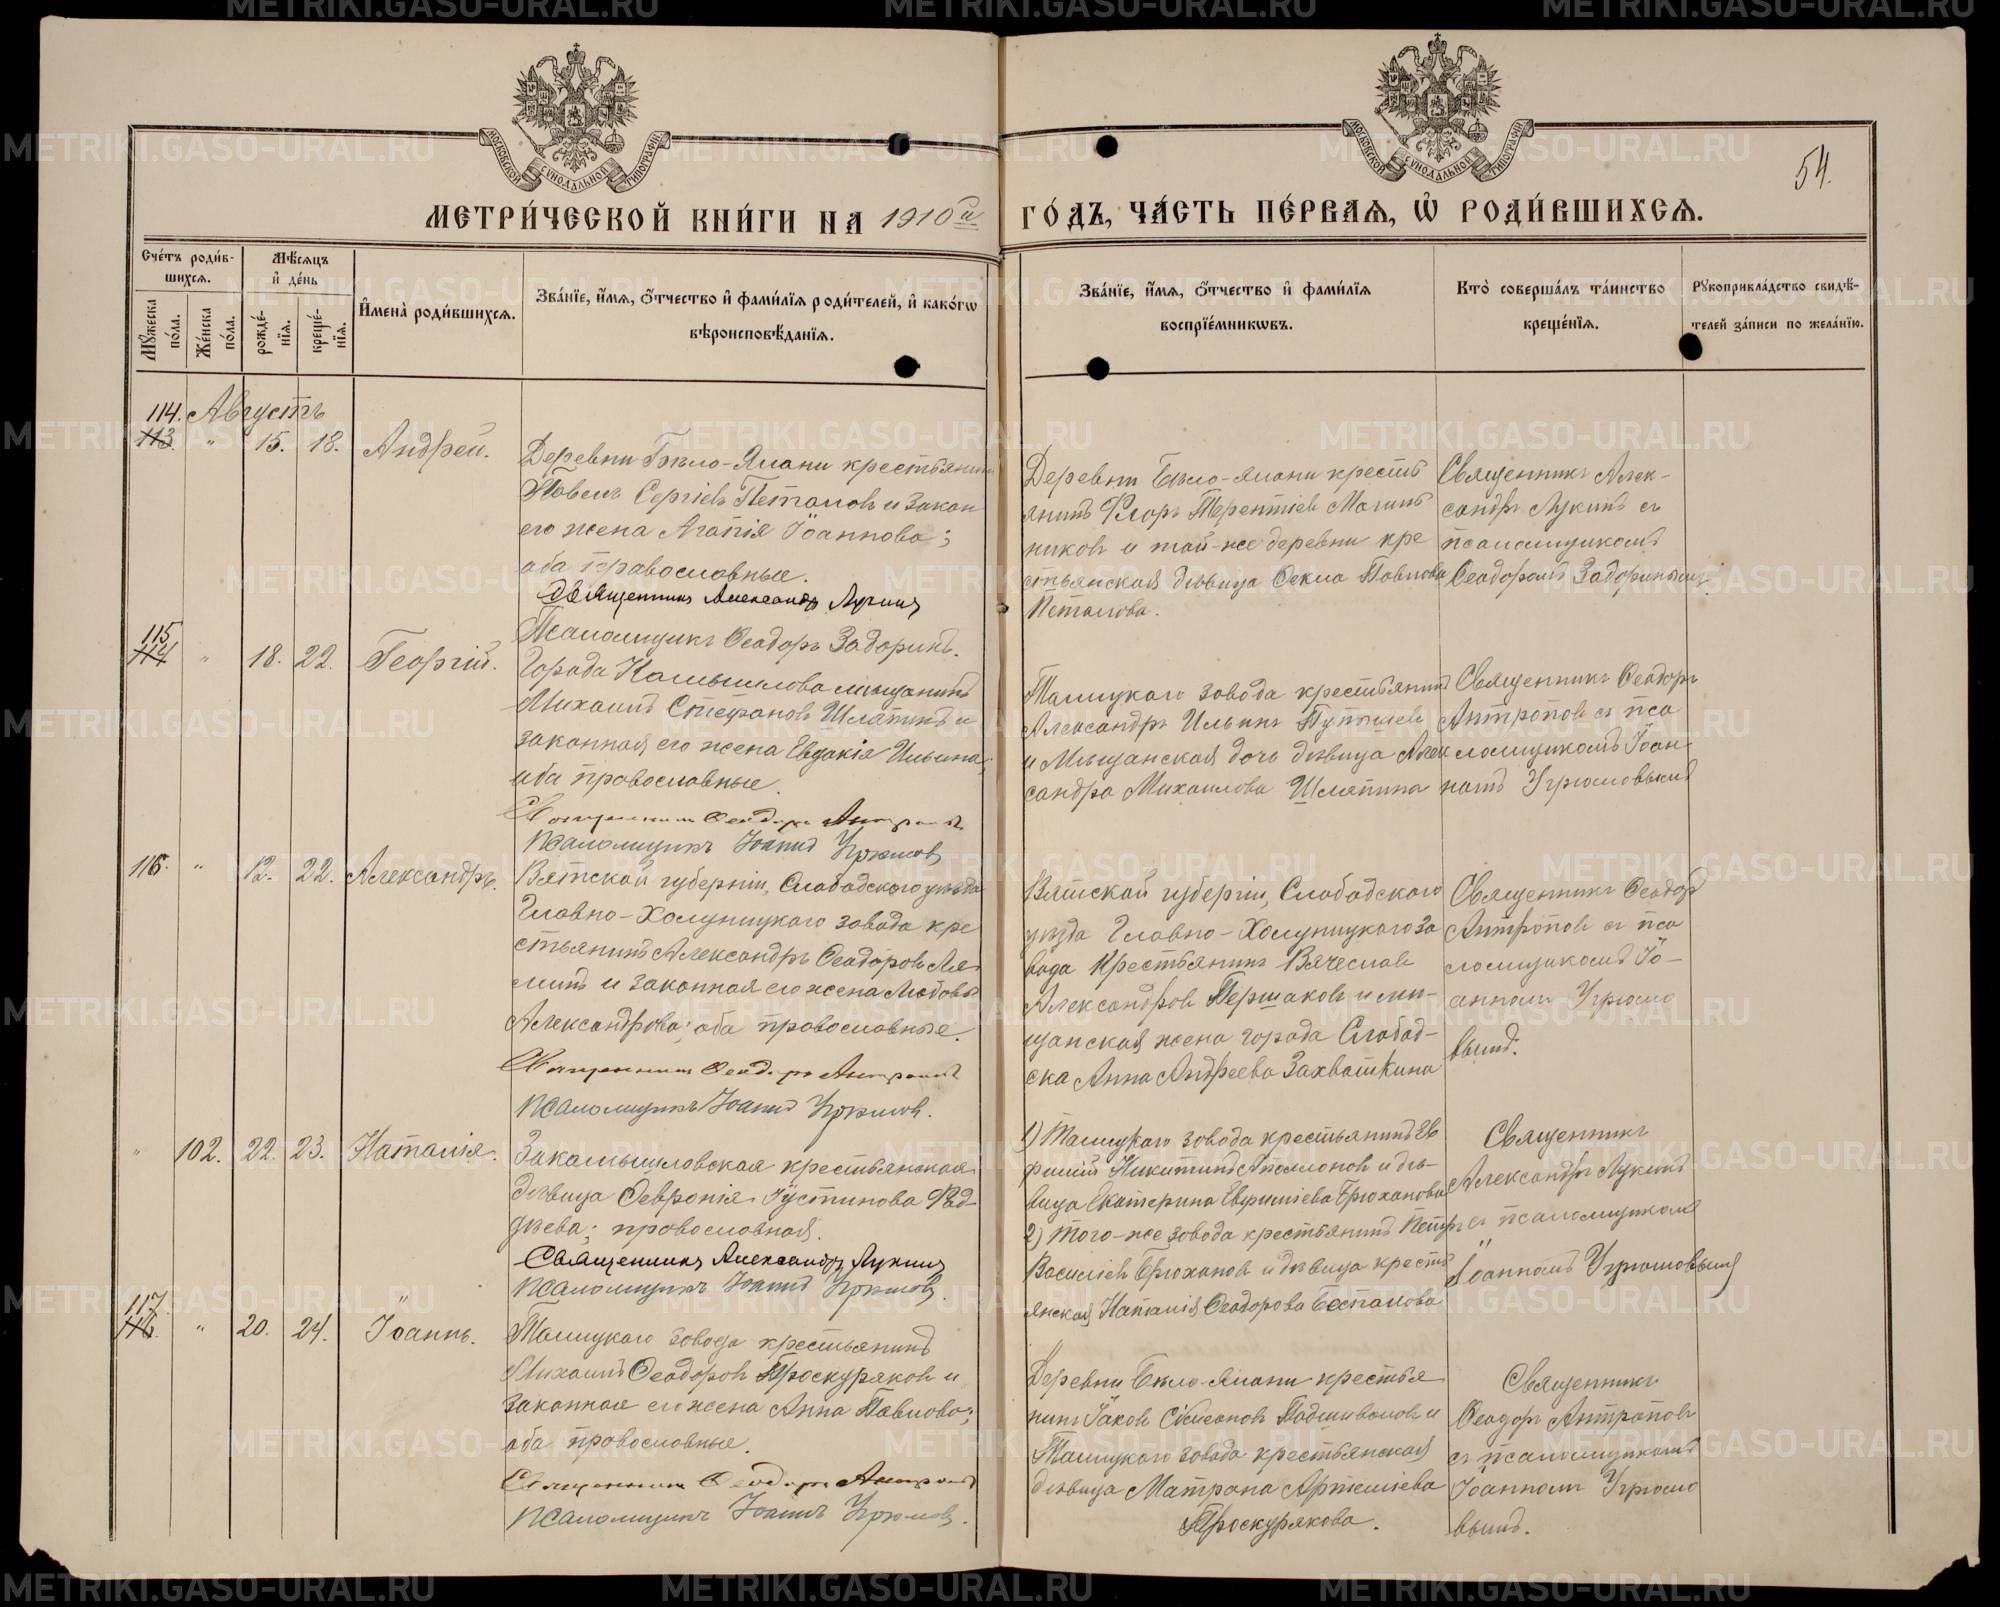 МЕТРИ́ЧЕСКОЙ КНИ́ГИ НА 1910й ГО́ДЪ, ЧА́СТЬ ПЕ́РВАЯ, Ѡ҆ РОДИ́ВШИХСЯ.
54.
Сче́тъ роди́в-
шихся.
Мѣ́сяцъ
и҆ де́нь
Мꙋ́жеска по́ла.
Же́нска по́ла.
рожде́-
нїя.
креще́-
нїя.
И҆мена̀ роди́вшихся.
Зва́нїе, и҆́мя, ѻ҆́тчество и҆ фами́лїя роди́телей, и҆ како́гѡ
вѣроисповѣ́данїя.
Зва́нїе, и҆́мя, ѻ҆́тчество и҆ фами́лїя
воспрїе́мникѡвъ.
Кто̀ соверша́лъ та́инство
креще́нїя.
Рꙋкоприкла́дство свидѣ́-
телей за́писи по жела́нїю.
Августъ
114.
113. " 15. 18. Андрей.
Деревни Бѣло-Ялани крестьянин
Павелъ Сергіевъ Петаловъ и закон
его жена Агапія Іоаннова;
оба православные.
Священникъ Александръ Лукинъ
Псаломщикъ Ѳеодоръ Задоринъ.
Деревни Бѣло-Ялани кресть
янинъ Флоръ Терентіевъ
никовъ и той-же деревни кре
стьянская дѣвица Ѳекла Павлова
Петалова.
Священникъ Алек-
сандръ Лукинъ съ
псаломщикомъ
Ѳеодоромъ Задоринымъ.
115
114 " 18. 22. Георгій.
Города Камышлова мѣщанинъ
Михаилъ Стефановъ Шляпинъ и
законная его жена Евдокія Ильина;
оба православные.
Священникъ Ѳеодоръ Антроповъ
Псаломщикъ Іоаннъ Угрюмовъ
Талицкаго завода крестьянинъ
Александръ Ильинъ
и мѣщанская дочь дѣвица Алек
сандра Михаилова Шляпина
Священникъ Ѳеодоръ
Антроповъ съ пса
ломщикомъ Іоан
номъ Угрюмовымъ
116. " 12. 22. Александръ.
Вятской губерніи, Слободского уѣзда
Главно-Холуницкаго завода кре
стьянинъ Александръ Ѳеодоровъ Ля
минъ и законная его жена Любовь
Александрова; оба православные.
Священникъ Ѳеодоръ Антроповъ
Псаломщикъ Іоаннъ Угрюмов.
Вятской губерніи, Слободского
уѣзда Главно-Холуницкаго за
вода крестьянинъ Вячеславъ
Александровъ Першаковъ и мѣ-
щанская жена города Слобод-
ска Анна Андреева Захваткина
Священникъ Ѳеодор
Антроповъ съ пса
ломщикомъ Іо-
анномъ Угрюмо
вымъ.
" 102. 22. 23. Наталія.
Закамышловская крестьянская
дѣвица Ѳевронія Іустинова Фад-
дѣева; православная.
Священникъ Александръ Лукинъ
Псаломщикъ Іоаннъ Угрюмовъ.
1) Талицкаго завода крестьянинъ Ев
фимій Никитинъ Аполлоновъ и дѣ-
вица Екатерина Евфиміева Брюханова
2) того-же завода крестьянинъ Петръ
Василіевъ Брюхановъ и дѣвица кресть
янская Наталія Ѳеодорова
Священникъ
Александръ Лукинъ
съ псаломщикомъ
Іоанномъ Угрюмовымъ
117.
116. " 20. 24. Іоаннъ.
Талицкаго завода крестьянинъ
Михаилъ Ѳеодоровъ Проскуряковъ и
законная его жена Анна Павлова;
оба православные.
Священникъ Ѳеодоръ Антроповъ
Псаломщикъ Іоаннъ Угрюмовъ.
Деревни Бѣло-Ялани крестья
нинъ Іаковъ Симеоновъ Подшиваловъ и
Талицкаго завода крестьянская
дѣвица Матрона Артеміева
Проскурякова.
Священникъ
Ѳеодоръ Антроповъ
съ псаломщикомъ
Іоанномъ Угрюмо
вымъ.
METRIKI.GASO-URAL.RU